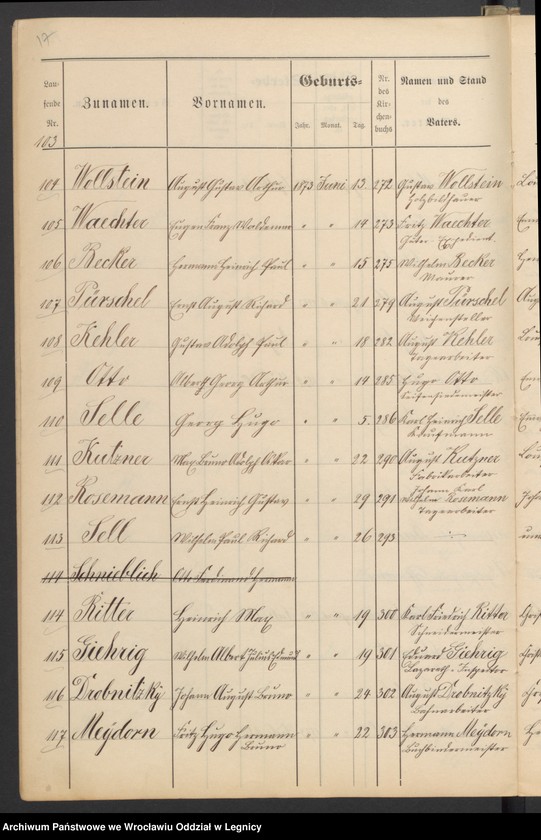 17.
Lau-
fende
Nr.
Zunamen.
Vornamen.
Geburts-
Jahr. Monat. Tag.
Nr.
des
Kir-
chen-
buchs
Namen und Stand
des
Vaters.
103
104 Wollstein August Gustav Arthur 1873 Juni 13. 272 Gustav Wollstein
Holzbildhauer
105 Waechter Eugen Franz Woldemar " " 14 273 Fritz Waechter
Güter Expedient.
106 Becker Hermann Heinrich Paul " " 15 275 Wilhelm Becker
Maurer
107 Pürschel Ernst August Richard " " 21 279 August Pürschel
Weichensteller
108 Kehler Gustav Adolph Paul " " 18 282 August Kehler
Tagearbeiter
109 Otto Albert Georg Arthur " " 19 285 Hugo Otto
Seifensiedemeister
110 Selle Georg Hugo " " 5. 286 Karl Heinrich Selle
Kaufmann
111 Kutzner Max Bruno Adolph Oskar " " 22 290 August Kutzner
Fabrikarbeiter
112 Rosemann Ernst Heinrich Gustav " " 29 291 Johann Karl
Wilhelm Rosemann
Tagearbeiter
113 Sell Wilhelm Paul Richard " " 26 293
114 Schnieblich Otto Ferdinand Hermann
114 Ritter Heinrich Max " " 19 300 Karl Friedrich Ritter
Schneidermeister
115 Giehrig Wilhelm Albert Julius Edmund " " 19 301 Eduard Giehrig
Lazareth-Inspector
116 Drobnitzky Johann August Bruno " " 24 302 August Drobnitzky
Bahnarbeiter
117 Meydorn Fritz Hugo Hermann " " 22 303 Hermann Meydorn
Bruno Buchbindermeister
Archiwum Państwowe we Wrocławiu Oddział w Legnicy